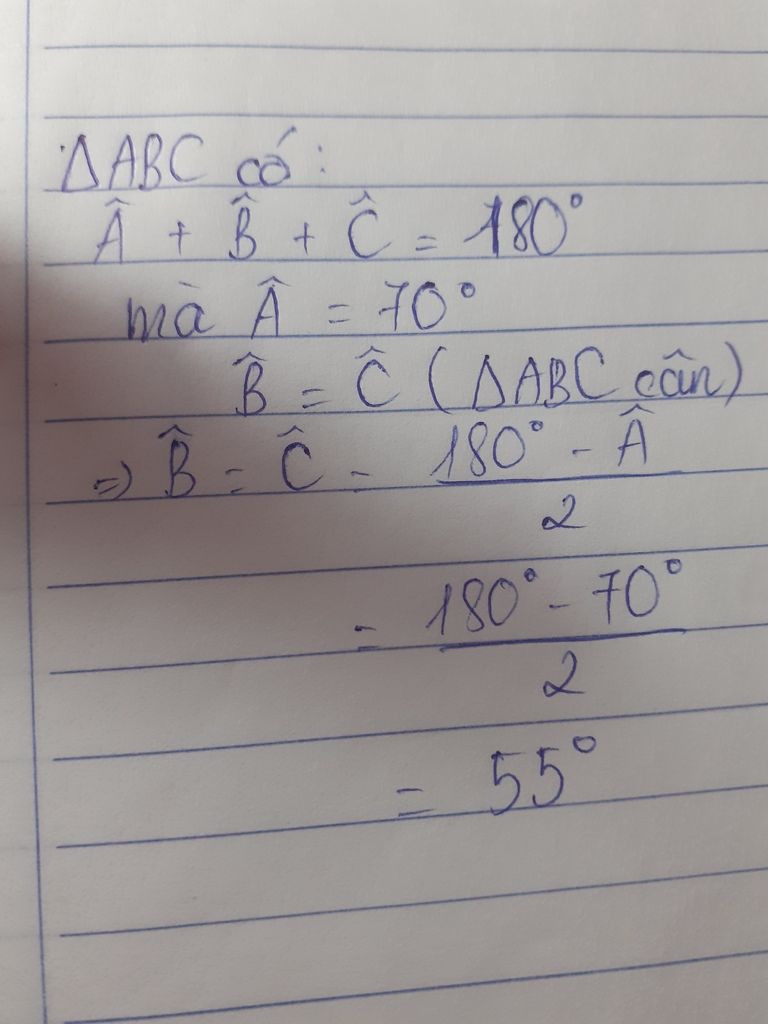 ΔABC có:
Â + B̂ + Ĉ = 180°
mà Â = 70°
B̂ = Ĉ (ΔABC cân)
=> B̂ = Ĉ = 180° - Â
2
= 180° - 70°
2
= 55°